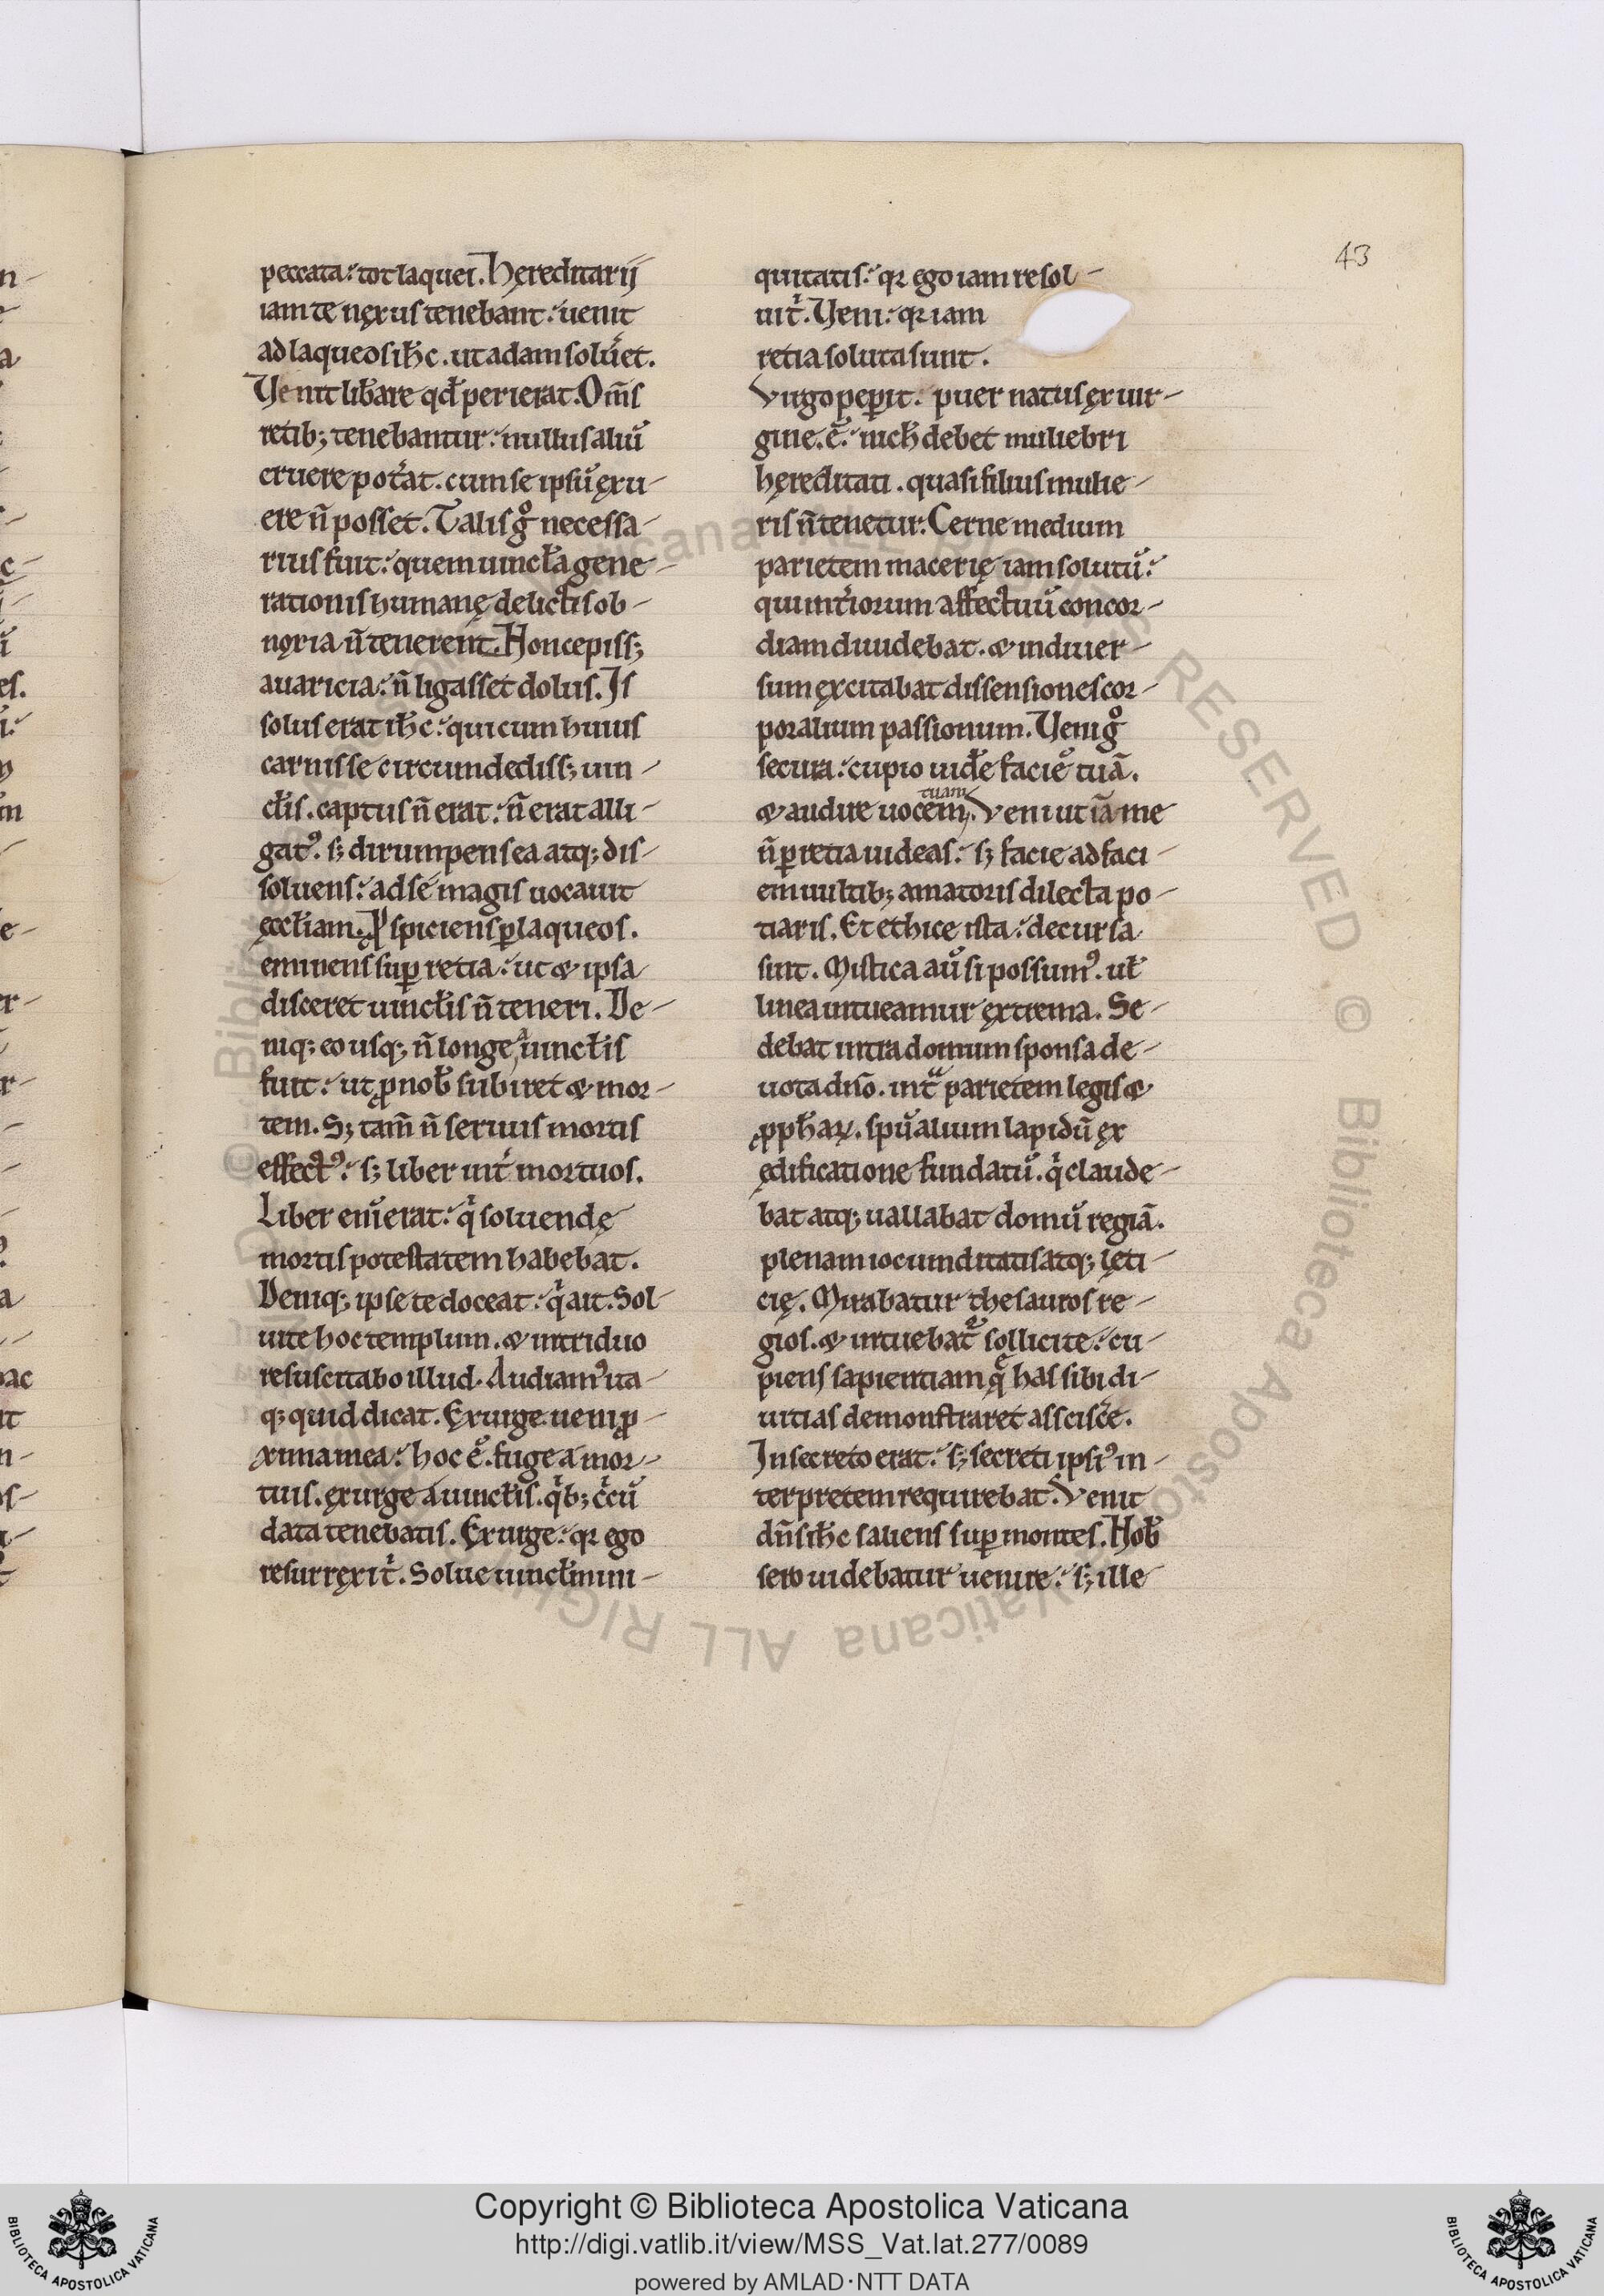 43
peccata. tot laquei. Hereditarij
iam te nexus tenebant. uenit
ad laqueos ihc. ut adam soluet.
Venit libare qd perierat. Oms
retib; tenebantur. nullus aliu
eruere poterat. cum se ipsu exu-
ere n posset. Talis g necessa-
rius fuit. quem uincta gene-
rationis humanę delictis ob-
noxia n tenerent. Non cepiss;
auaricia. n ligasset dolus. Is
solus erat ihc. qui cum huius
carnis se circumdediss; uin-
ctis. captus n erat. n erat alli-
gat9. s; dirumpens ea atq; dis-
soluens. ad se magis uocauit
eccliam. Pspiciens p laqueos.
eminens sup retia. ut & ipsa
disceret uinctis n teneri. De-
niq; eo usq; n longe a uinctis
fuit. ut p nob subiret & mor-
tem. S; tam n seruus mortis
effect9. s; liber int mortuos.
Liber eni erat. q soluendę
mortis potestatem habebat.
Deniq; ipse te doceat. q ait. Sol-
uite hoc templum. & in triduo
resuscitabo illud. Audiam9 ita-
q; quid dicat. Exurge ueni p-
xima mea. hoc e. fuge a mor-
tuis. exurge a uinctis. qb; ccu
data tenebatis. Exurge. qr ego
resurrexit. Solue uinclm ini-
quitatis. qr ego iam resol-
uit. Veni. qr iam
retia soluta sunt.
Virgo pepit. puer natus ex uir-
gine. e. nich debet muliebri
hereditati. quasi filius mulie-
ris n tenetur. Cerne medium
parietem macerię iam solutu.
qui intiorum affectuu concor-
diam diuidebat. & in diuer-
sum excitabat dissensiones cor-
poralium passionum. Veni g
secura. cupio uide facie tua.
& audire uocem tuam. Veni ut ia me
n p retia uideas. s; facie ad faci-
em uultib; amatoris dilecta po-
tiaris. Et ethice ista. decursa
sint. Mistica au si possum9. ut
linea intueamur extrema. Se-
debat intra domum sponsa de-
uota dno. int parietem legis &
pphar. spualium lapidu ex
ędificatione fundatu. q claude-
bat atq; uallabat domu regia.
plenam iocunditatis atq; lęti-
cię. Mirabatur thesauros re-
gios. & intuebat sollicite. cu-
piens sapientiam q has sibi di-
uitias demonstraret asscisce.
In secreto erat. s; secreti ipsi9 in-
terpretem requirebat. Venit
dns ihc saliens sup montes. Nob
sero uidebatur uenire. s; ille
Copyright © Biblioteca Apostolica Vaticana
http://digi.vatlib.it/view/MSS_Vat.lat.277/0089
powered by AMLAD·NTT DATA
BIBLIOTECA APOSTOLICA VATICANA
BIBLIOTECA APOSTOLICA VATICANA